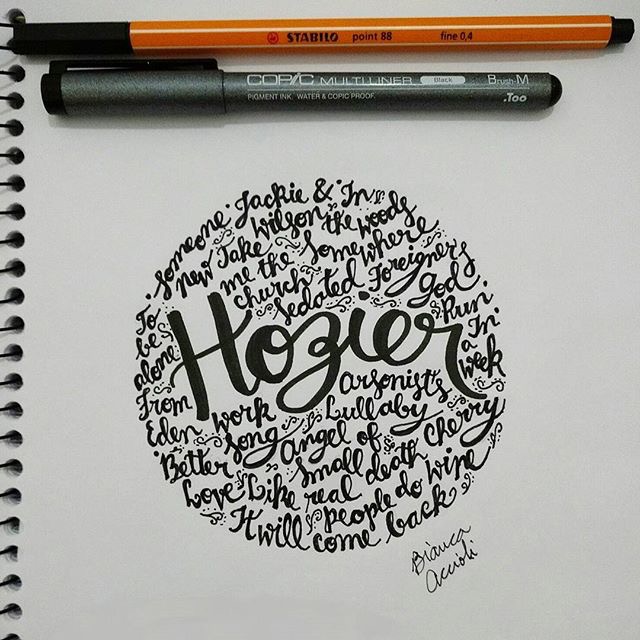 STABILO point 88 fine 0,4
COPIC MULTILINER Black Brush-M
PIGMENT INK. WATER & COPIC PROOF. .Too
Someone Jackie & In
new Take Wilson the woods
me the Somewhere
church Sedated Foreigners
God
To
be
alone
Hozier
Run
In
a
week
From
Eden
work
song
Arsonist's
Lullaby
Angel of
small death
Cherry
wine
Better
Love Like real
people do
It will come back
Bianca
Accioli